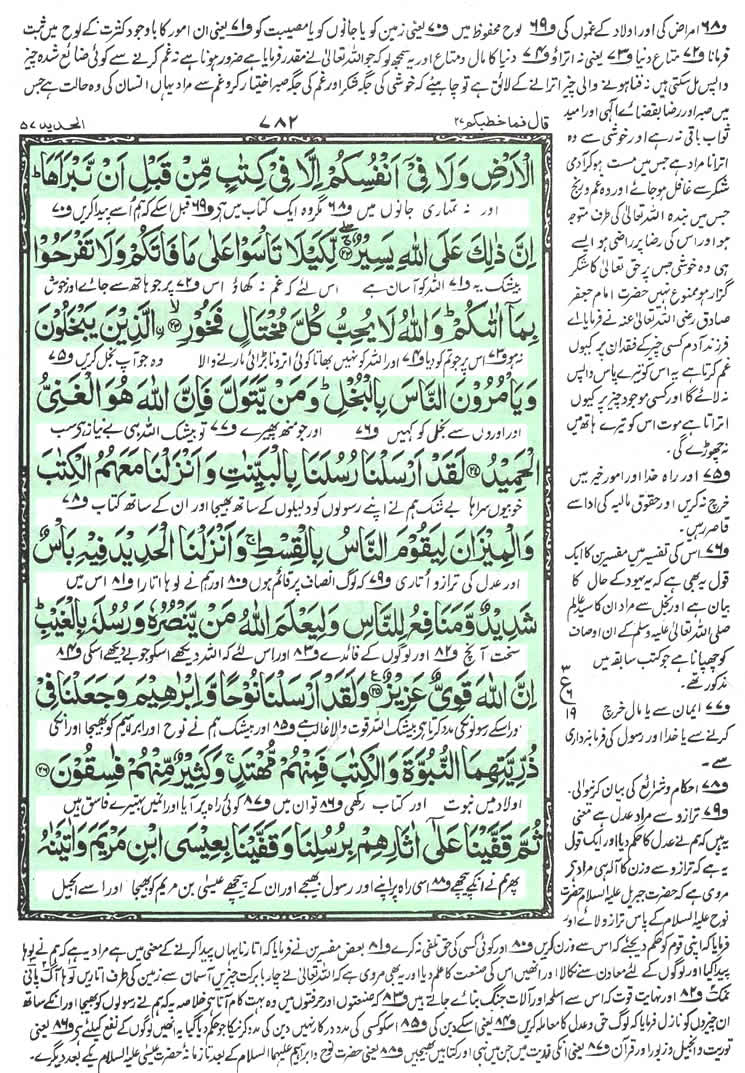 و۶۸ امراض کی اور اولاد کے غموں کی و۶۹ لوح محفوظ میں و۷۰ یعنی زمین کو یا جانوں کو یا مصیبت کو و۷۱ یعنی ان امور کا باوجود کثرت کے لوح میں ثبت
فرمانا و۷۲ متاعِ دنیا و۷۳ یعنی نہ اتراؤ و۷۴ دنیا کا مال و متاع اور سمجھ لو کہ جو اللہ تعالٰی نے مقدر فرمایا ہے ضرور ہونا ہے نہ غم کرنے سے کوئی ضائع شدہ چیز
واپس مل سکتی ہیں نہ فنا ہونے والی چیز اترانے کے لائق ہے تو چاہئے کہ خوشی کی جگہ شکر اور غم کی جگہ صبر اختیار کرو غم سے مراد یہاں انسان کی وہ حالت ہے جس
قال فما خطبکم ۲۷
۷۸۲
الحدید ۵۷
الْاَرْضِ وَلَا فِیْۤ اَنْفُسِكُمْ اِلَّا فِیْ كِتٰبٍ مِّنْ قَبْلِ اَنْ نَّبْرَاَهَاؕ
اور نہ تمہاری جانوں میں و۶۸ مگر وہ ایک کتاب میں ہے و۶۹ قبل اسکے کہ ہم اُسے پیدا کریں و۷۰
اِنَّ ذٰلِكَ عَلَى اللّٰهِ یَسِیْرٌۚۖ۝۲۲ لِّكَیْلَا تَاْسَوْا عَلٰى مَا فَاتَكُمْ وَلَا تَفْرَحُوْا
بیشک یہ و۷۱ اللہ کو آسان ہے اس لئے کہ غم نہ کھاؤ اس و۷۲ پر جو ہاتھ سے جائے اور خوش
بِمَاۤ اٰتٰىكُمْؕ وَاللّٰهُ لَا یُحِبُّ كُلَّ مُخْتَالٍ فَخُوْرِۙ۝۲۳ الَّذِیْنَ یَبْخَلُوْنَ
نہ ہو و۷۳ اس پر جو تم کو دیا و۷۴ اور اللہ کو نہیں بھاتا کوئی اترونا بڑائی مارنے والا وہ جو آپ بخل کریں و۷۵
وَیَاْمُرُوْنَ النَّاسَ بِالْبُخْلِؕ وَمَنْ یَّتَوَلَّ فَاِنَّ اللّٰهَ هُوَ الْغَنِیُّ
اور اوروں سے بخل کو کہیں و۷۶ اور جو منھ پھیرے و۷۷ تو بیشک اللہ ہی بے نیاز ہے سب
الْحَمِیْدُ۝۲۴ لَقَدْ اَرْسَلْنَا رُسُلَنَا بِالْبَیِّنٰتِ وَاَنْزَلْنَا مَعَهُمُ الْكِتٰبَ
خوبیوں سراہا بے شک ہم نے اپنے رسولوں کو دلیلوں کے ساتھ بھیجا اور ان کے ساتھ کتاب و۷۸
وَالْمِیْزَانَ لِیَقُوْمَ النَّاسُ بِالْقِسْطِۚ وَاَنْزَلْنَا الْحَدِیْدَ فِیْهِ بَاْسٌ
اور عدل کی ترازو اُتاری و۷۹ کہ لوگ انصاف پر قائم ہوں و۸۰ اور ہم نے لوہا اُتارا و۸۱ اس میں
شَدِیْدٌ وَّمَنَافِعُ لِلنَّاسِ وَلِیَعْلَمَ اللّٰهُ مَنْ یَّنْصُرُهٗ وَرُسُلَهٗ بِالْغَیْبِؕ
سخت آنچ و۸۲ اور لوگوں کے فائدے و۸۳ اور اس لئے کہ اللہ دیکھے اسکو جو بے دیکھے اسکی و۸۴
اِنَّ اللّٰهَ قَوِیٌّ عَزِیْزٌ۠۝۲۵ وَلَقَدْ اَرْسَلْنَا نُوْحًا وَّاِبْرٰهِیْمَ وَجَعَلْنَا فِیْ
اور اسکے رسولوں کی مدد کرتا ہے بیشک اللہ قوت والا غالب ہے و۸۵ اور بیشک ہم نے نوح اور ابراہیم کو بھیجا اور انکی
ذُرِّیَّتِهِمَا النُّبُوَّةَ وَالْكِتٰبَ فَمِنْهُمْ مُّهْتَدٍۚ وَكَثِیْرٌ مِّنْهُمْ فٰسِقُوْنَ۝۲۶
اولاد میں نبوت اور کتاب رکھی و۸۶ تو ان میں و۸۷ کوئی راہ پر آیا اور انمیں بہتیرے فاسق ہیں
ثُمَّ قَفَّیْنَا عَلٰۤى اٰثَارِهِمْ بِرُسُلِنَا وَقَفَّیْنَا بِعِیْسَى ابْنِ مَرْیَمَ وَاٰتَیْنٰهُ
پھر ہم نے انکے پیچھے و۸۸ اسی راہ پر اپنے اور رسول بھیجے اور ان کے پیچھے عیسٰی بن مریم کو بھیجا اور اسے انجیل
میں صبر اور رضا بقضائے الٰہی اور امید
ثواب باقی نہ رہے اور خوشی سے وہ
اترانا مراد ہے جس میں مست ہو کر آدمی
شکر سے غافل ہو جائے اور وہ غم و رنج
جس میں بندہ اللہ تعالٰی کی طرف متوجہ
ہو اور اس کی رضا پر راضی ہو ایسے
ہی وہ خوشی جس پر حق تعالٰی کا شکر
گزار ہو ممنوع نہیں حضرت امام جعفر
صادق رضی اللہ تعالٰی عنہ نے فرمایا اے
فرزند آدم کسی چیز کے فقدان پر کیوں
غم کرتا ہے یہ اس کو تیرے پاس واپس
نہ لائے گا اور کسی موجود چیز پر کیوں
اتراتا ہے موت اس کو تیرے ہاتھ میں
نہ چھوڑے گی۔
و۷۵ اور راہ خدا اور امور خیر میں
خرچ نہ کریں اور حقوق مالیہ کی ادا سے
قاصر رہیں۔
و۷۶ اس کی تفسیر میں مفسرین کا ایک
قول یہ بھی ہے کہ یہ یہود کے حال کا
بیان ہے اور بخل سے مراد ان کا سید عالم
صلی اللہ تعالٰی علیہ وسلم کے ان اوصاف
کو چھپانا ہے جو کتب سابقہ میں
مذکور تھے۔
۳
ع
۶
۱۹
و۷۷ ایمان سے یا مال خرچ
کرنے سے یا خدا اور رسول کی فرمانبرداری
سے۔
و۷۸ احکام و شرائع کی بیان کرنیوالی۔
و۷۹ ترازو سے مراد عدل ہے معنی
یہ ہیں کہ ہم نے عدل کا حکم دیا اور ایک قول
یہ ہے کہ ترازو سے وزن کا آلہ ہی مراد ہے
مروی ہے کہ حضرت جبریل علیہ السلام حضرت
نوح علیہ السلام کے پاس ترازو لائے اور
فرمایا کہ اپنی قوم کو حکم دیجئے کہ اس سے وزن کریں و۸۰ اور کوئی کسی کی حق تلفی نہ کرے و۸۱ بعض مفسرین نے فرمایا کہ اتارنا یہاں پیدا کرنے کے معنی میں ہے مراد یہ ہے کہ ہم نے لوہا
پیدا کیا اور لوگوں کے لئے معادن سے نکالا اور انھیں اس کی صنعت کا علم دیا اور یہ بھی مروی ہے کہ اللہ تعالٰی نے چار بابرکت چیزیں آسمان سے زمین کی طرف اتاریں لوہا آگ پانی
نمک و۸۲ اور نہایت قوت کہ اس سے اسلحہ اور آلات جنگ بنائے جاتے ہیں و۸۳ کہ صنعتوں اور حرفتوں میں وہ بہت کام آتا ہے خلاصہ یہ کہ ہم نے رسولوں کو بھیجا اور انکے ساتھ
ان چیزوں کو نازل فرمایا کہ لوگ حق و عدل کا معاملہ کریں و۸۴ یعنی اسکے دین کی و۸۵ اسکو کسی کی مدد درکار نہیں دین کی مدد کرنے کا جو حکم دیا گیا یہ انھیں لوگوں کے نفع کیلئے ہے و۸۶ یعنی
توریت و انجیل و زبور اور قرآن و۸۷ یعنی انکی ذریت میں جن میں نبی اور کتابیں بھیجیں و۸۸ یعنی حضرت نوح و ابراہیم علیہما السلام کے بعد تا زمانۂ حضرت عیسٰی علیہ السلام یکے بعد دیگرے۔